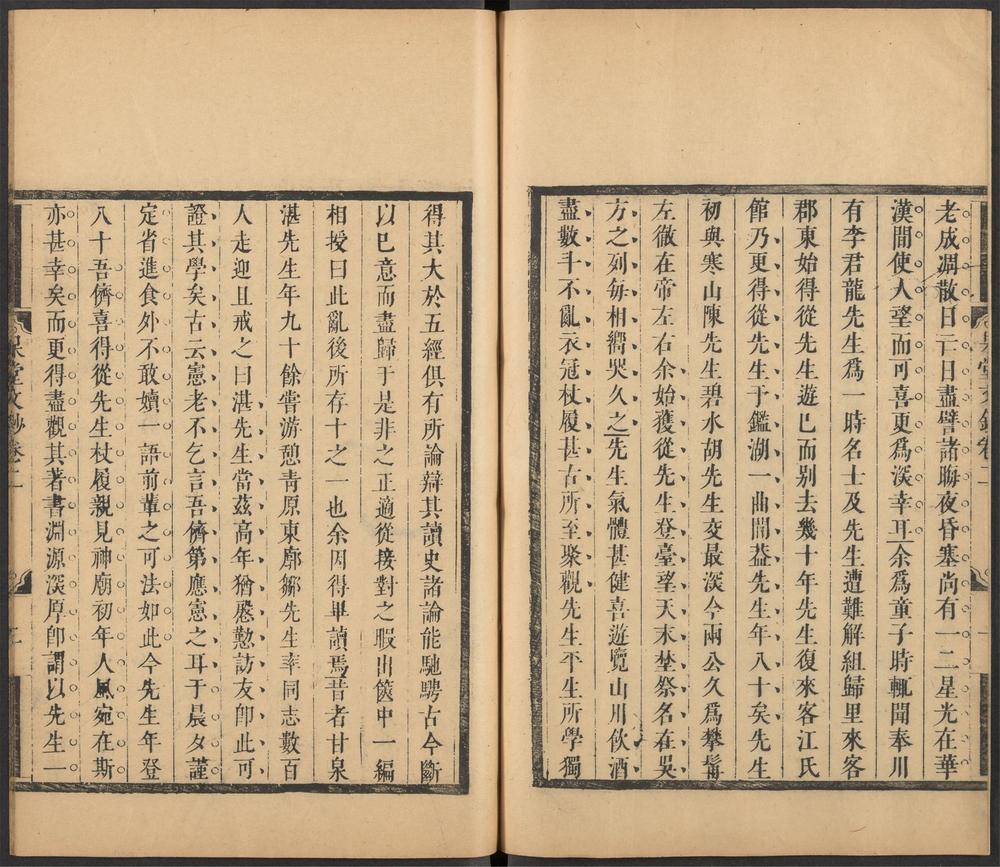 老成凋散日一日盡譬諸晦夜昏塞尚有一二星光在華
漢間使人望而可喜更爲深幸耳余爲童子時輒聞奉川
有李君龍先生爲一時名士及先生遭難解組歸里來客
郡東始得從先生遊已而别去幾十年先生復來客江氏
館乃更得從先生于鑑湖一曲間葢先生年八十矣先生
初與寒山陳先生碧水胡先生交最深今兩公久爲攀髯
左徹在帝左右余始獲從先生登臺望天末埜祭名在吳
方之列每相嚮哭久之先生氣體甚健喜遊覽山川伙酒
盡數斗不亂衣冠杖履甚古所至聚觀先生平生所學獨
得其大於五經俱有所論辯其讀史諸論能馳騁古今斷
以已意而盡歸于是非之正適從接對之暇出篋中一編
相授曰此亂後所存十之一也余因得畢讀焉昔者甘泉
湛先生年九十餘嘗游憩青原東廓鄒先生率同志數百
人走迎且戒之曰湛先生當茲高年猶慇懃訪友卽此可
證其學矣古云憲老不乞言吾儕第應憲之耳于晨夕謹
定省進食外不敢嬻一語前輩之可法如此今先生年登
八十吾儕喜得從先生杖履親見神廟初年人風宛在斯
亦甚幸矣而更得盡觀其著書淵源深厚卽謂以先生一
杲堂文鈔卷二